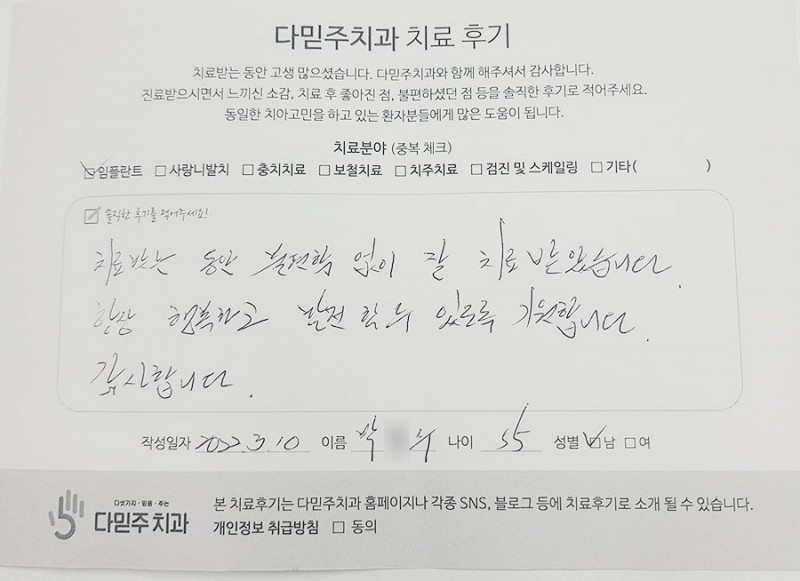 다믿주치과 치료 후기
치료받는 동안 고생 많으셨습니다. 다믿주치과와 함께 해주셔서 감사합니다.
진료받으시면서 느끼신 소감, 치료 후 좋아진 점, 불편하셨던 점 등을 솔직한 후기로 적어주세요.
동일한 치아고민을 하고 있는 환자분들에게 많은 도움이 됩니다.
치료분야 (중복 체크)
임플란트 사랑니발치 충치치료 보철치료 치주치료 검진 및 스케일링 기타( )
솔직한 후기를 적어주세요!
치료받는 동안 불편함 없이 잘 치료 받았습니다.
항상 행복하고 발전 할 수 있도록 기원합니다.
감사합니다.
작성일자 2022.3.10 이름 박 나이 55 성별 남 여
다섯가지·믿음·주는
다믿주치과
본 치료후기는 다믿주치과 홈페이지나 각종 SNS, 블로그 등에 치료후기로 소개 될 수 있습니다.
개인정보 취급방침 동의